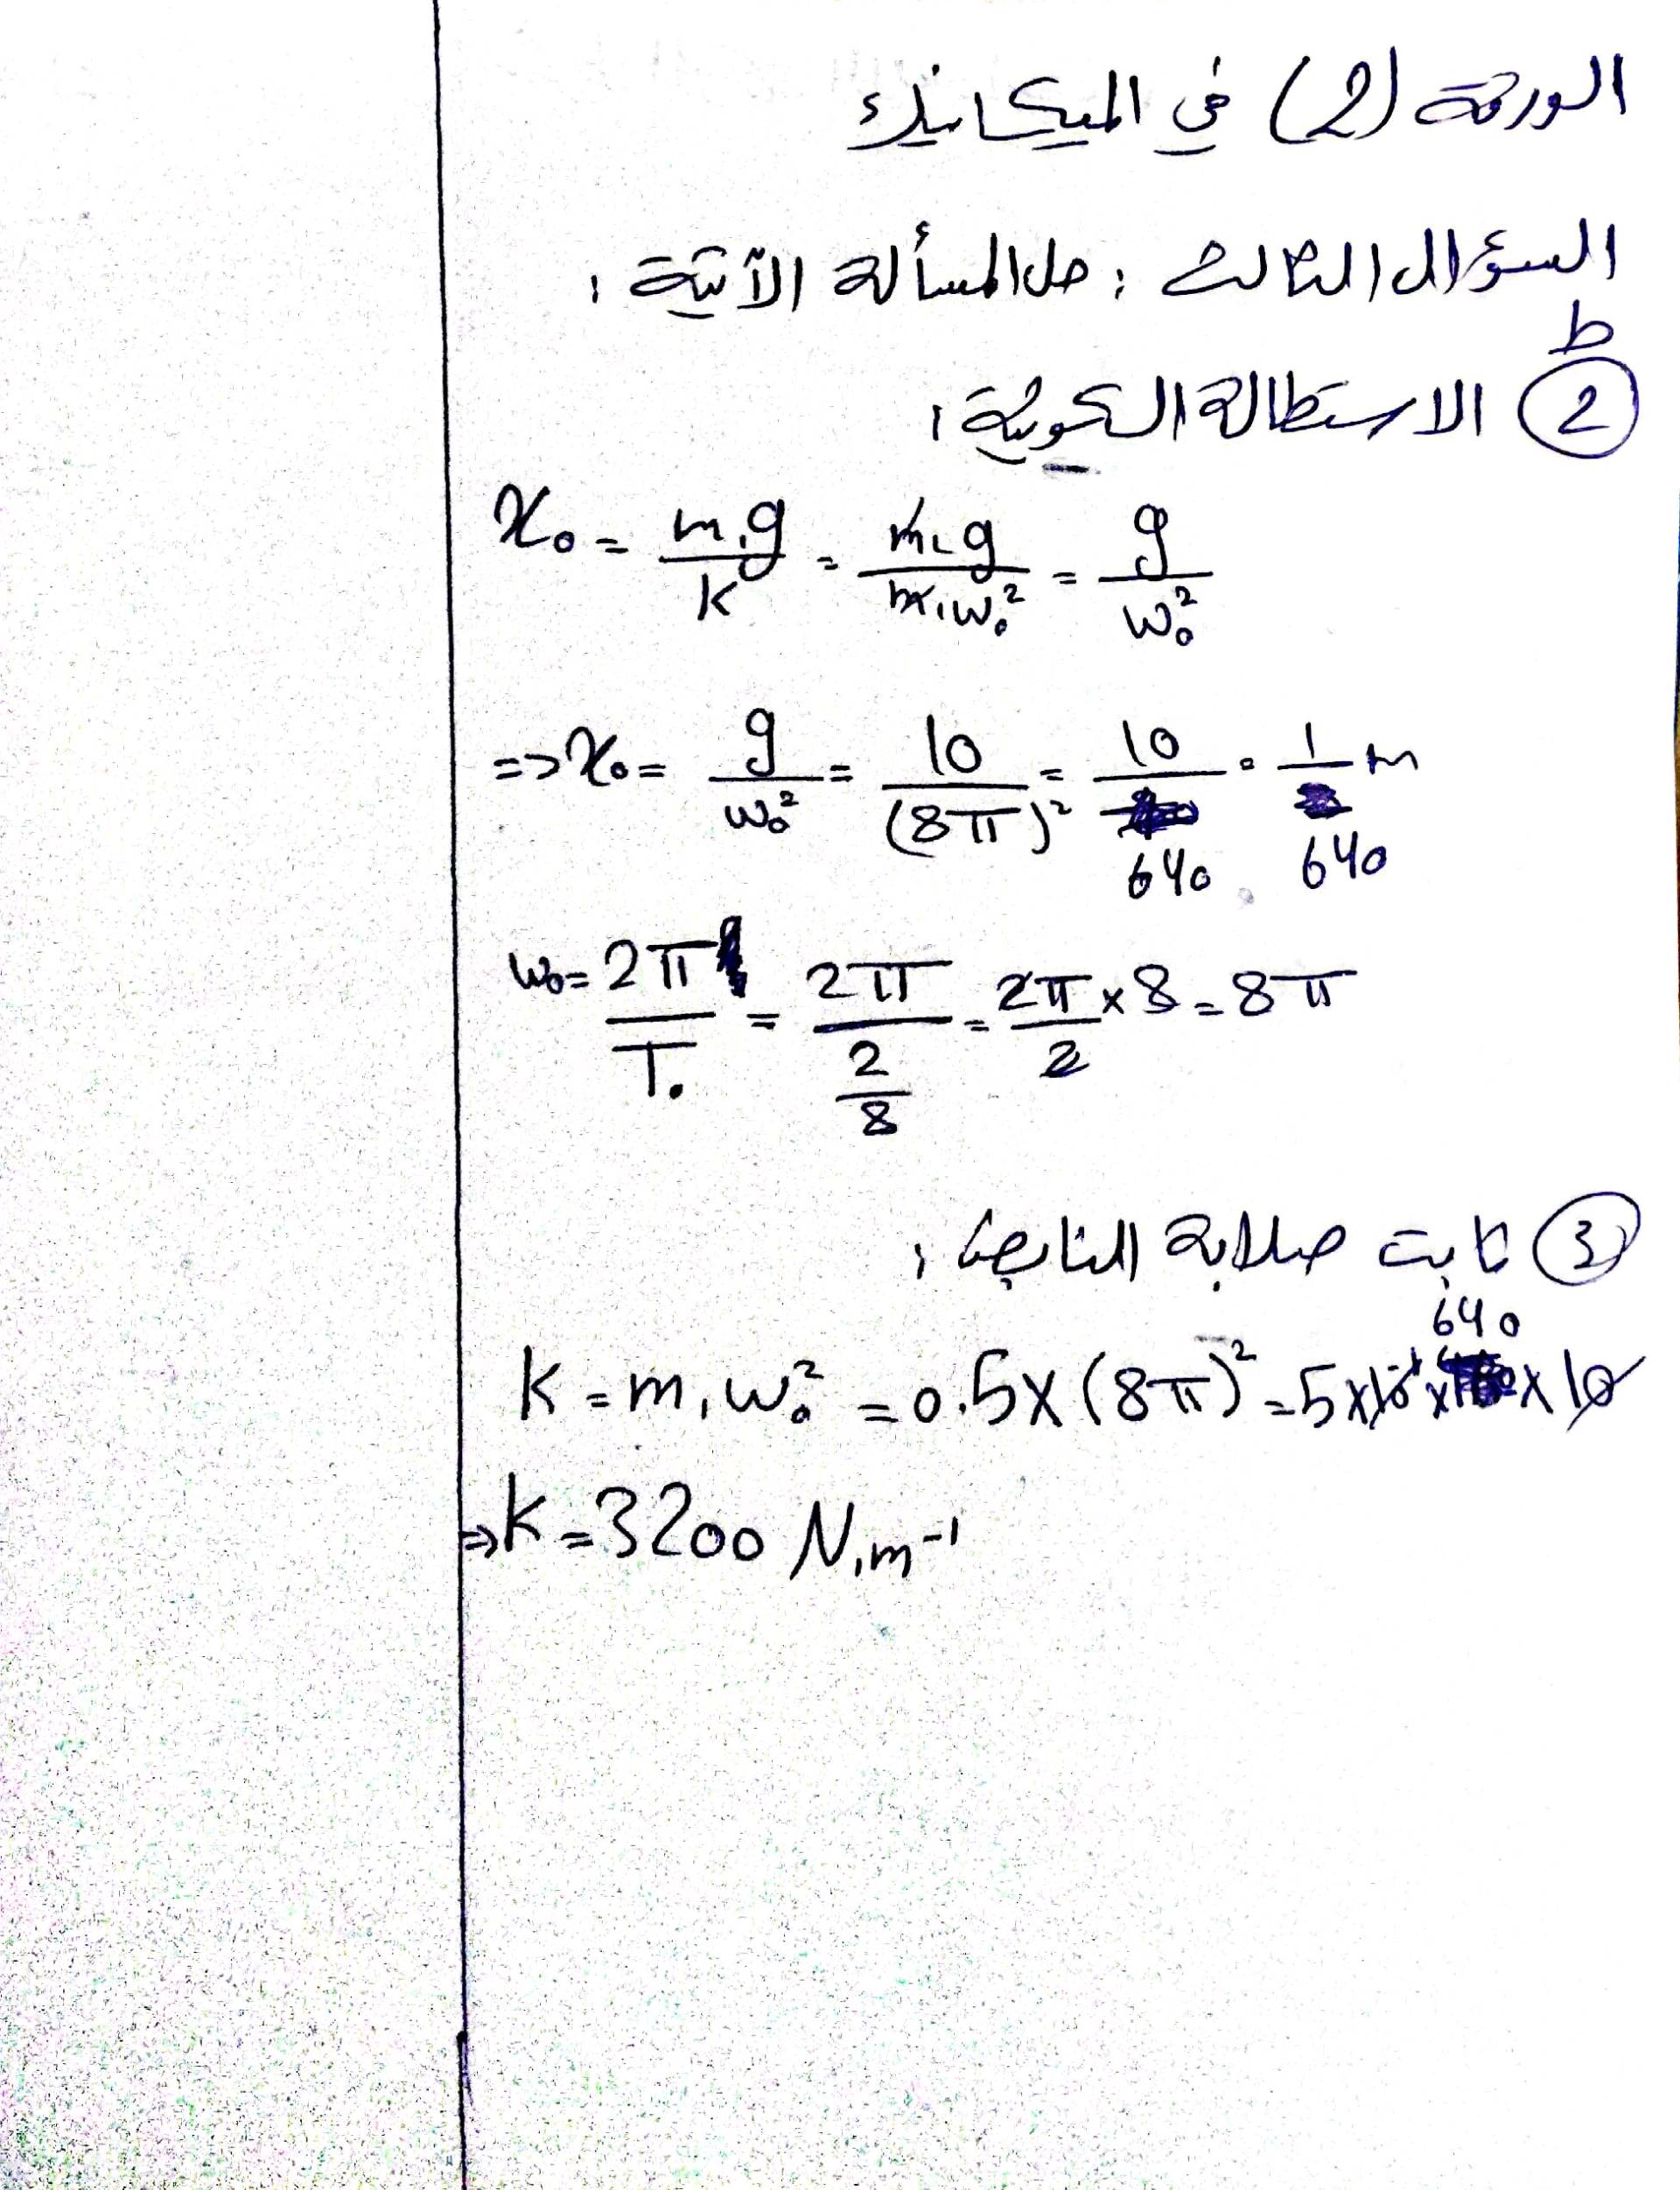 الورقة (2) في الميكانيك
السؤال الثالث : حل المسألة الآتية :
ط
② الاستطالة السكونية :
x₀ = m₁g/k = m₁g/m₁ω₀² = g/ω₀²
=> x₀ = g/ω₀² = 10/(8π)² = 10/640 = 1/640 m
ω₀ = 2π/T₀ = 2π/(2/8) = 2π/2 × 8 = 8π
③ ثابت صلابة النابض :
k = m₁ω₀² = 0.5 × (8π)² = 5 × 10⁻¹ × 640 × 10
=> k = 3200 N.m⁻¹